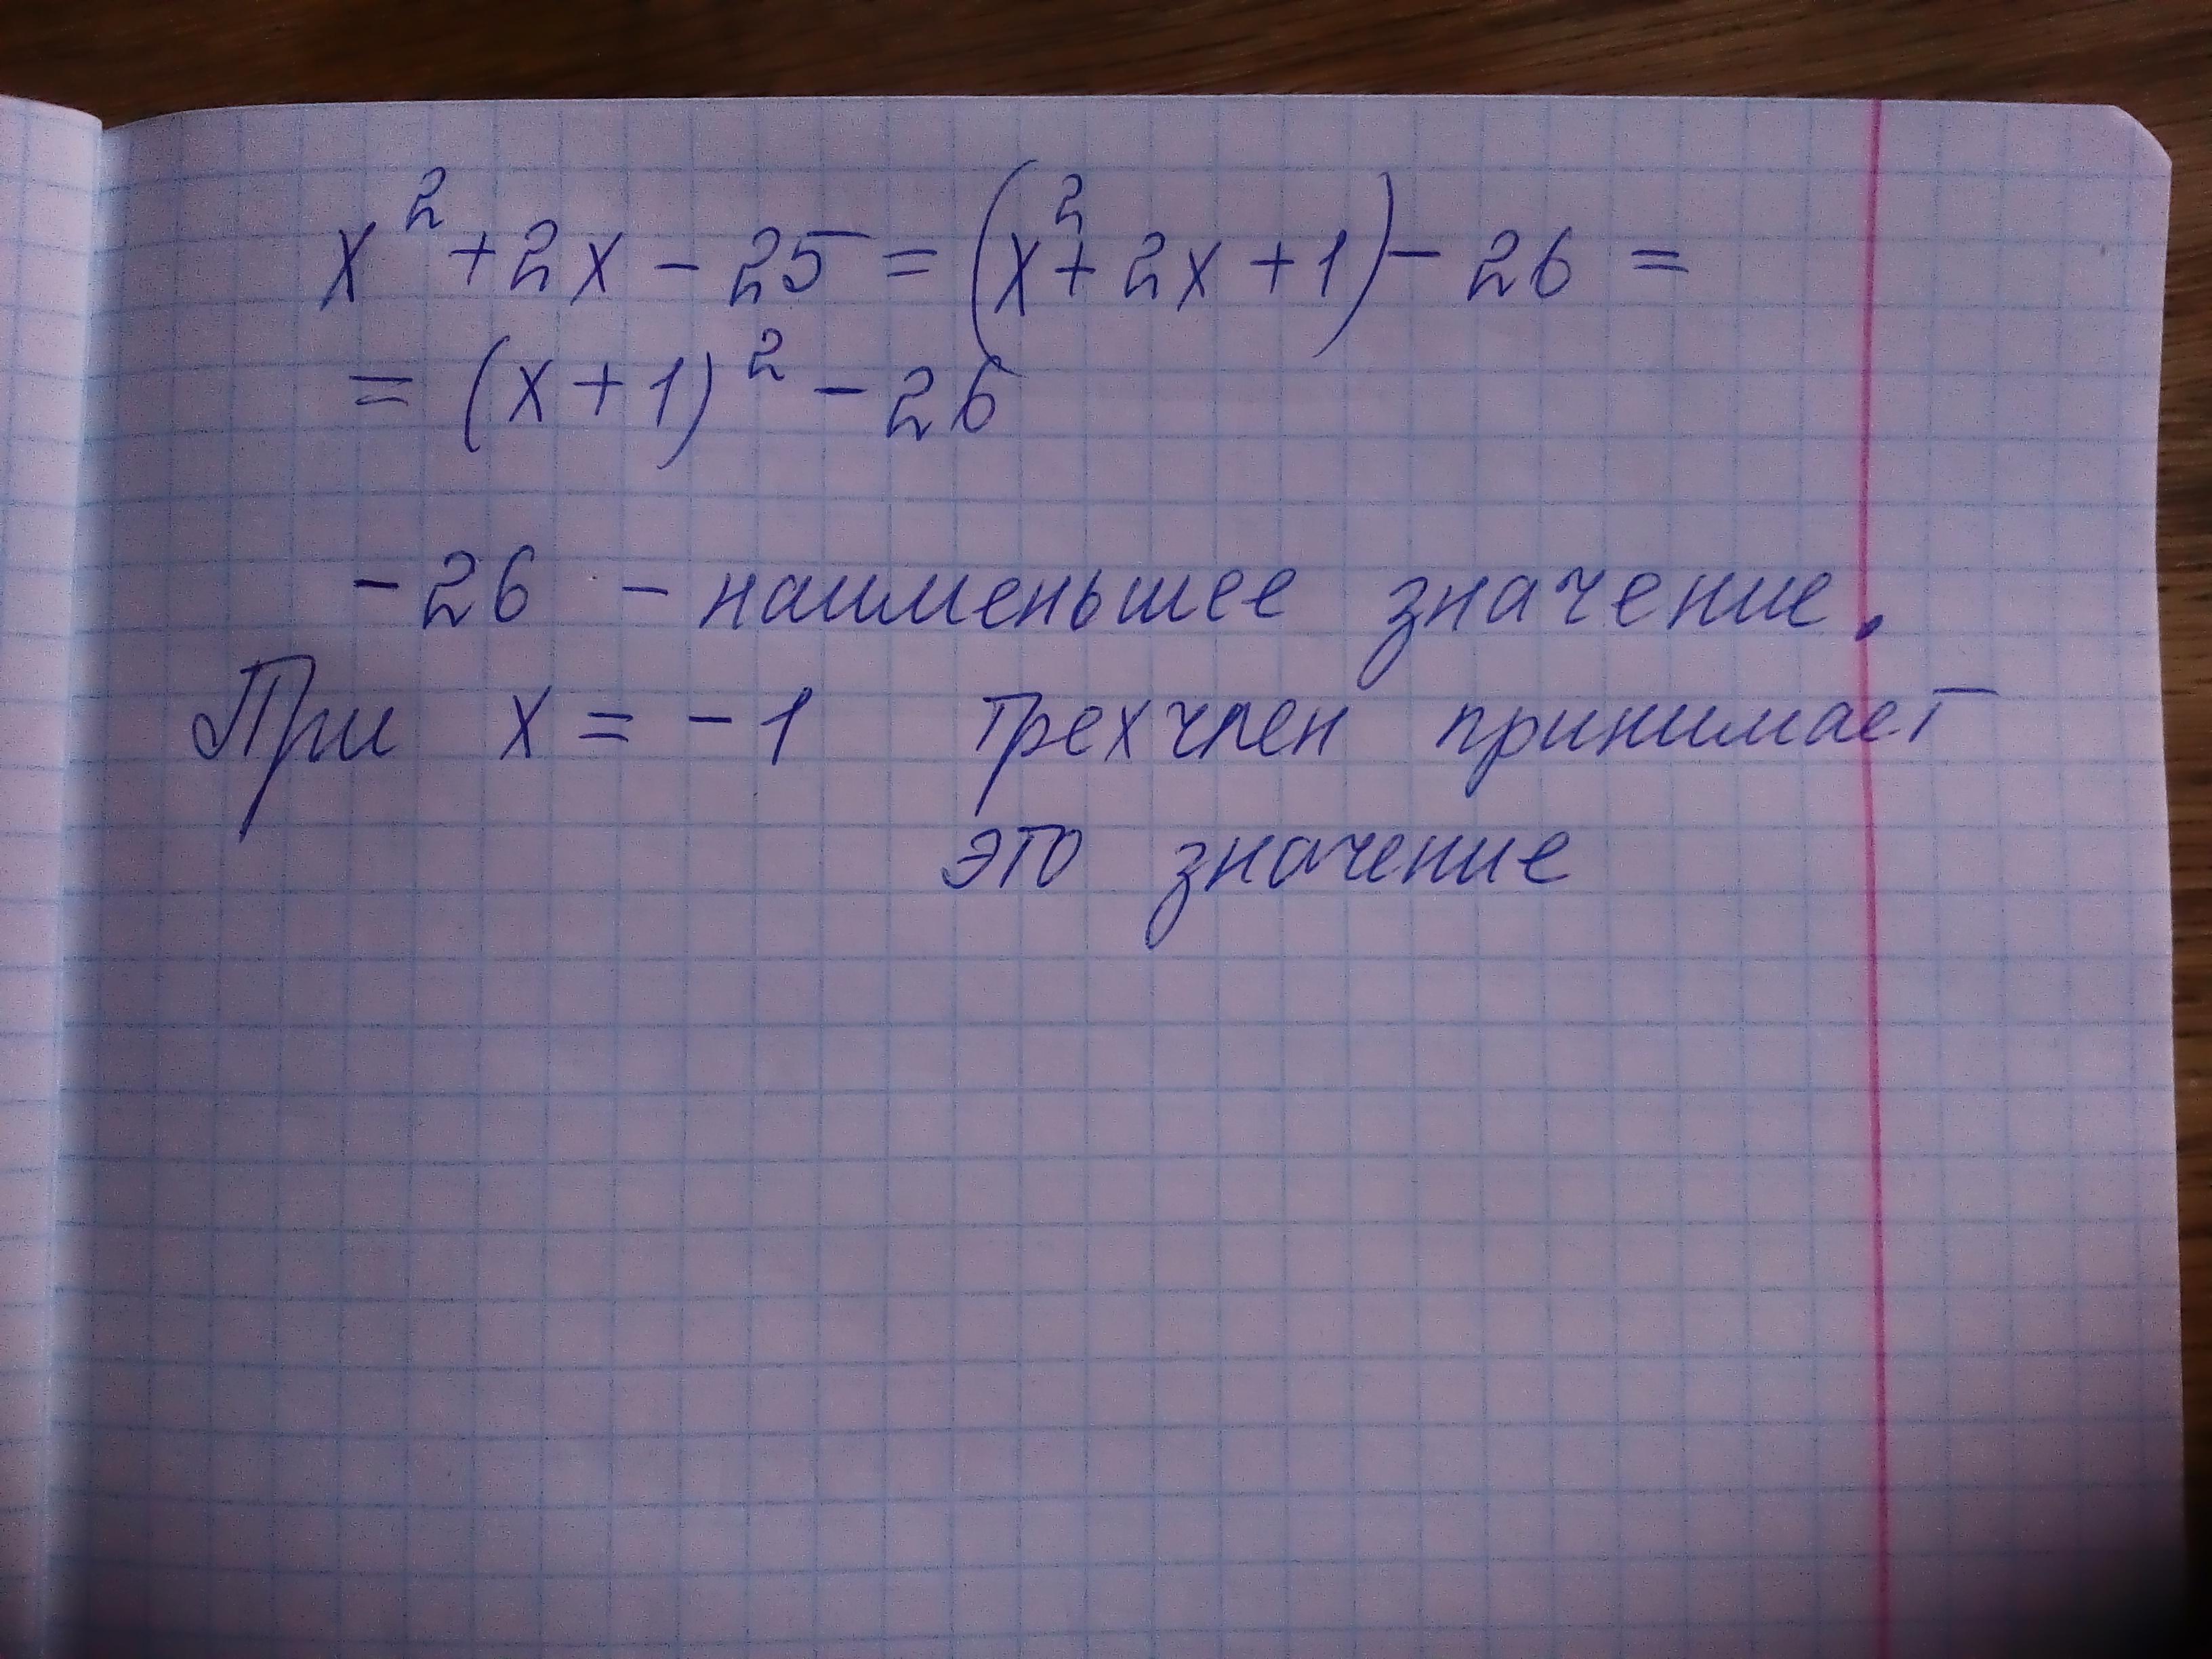 x² + 2x - 25 = (x² + 2x + 1) - 26 =
= (x + 1)² - 26
- 26 - наименьшее значение.
При x = - 1 трехчлен принимает
это значение